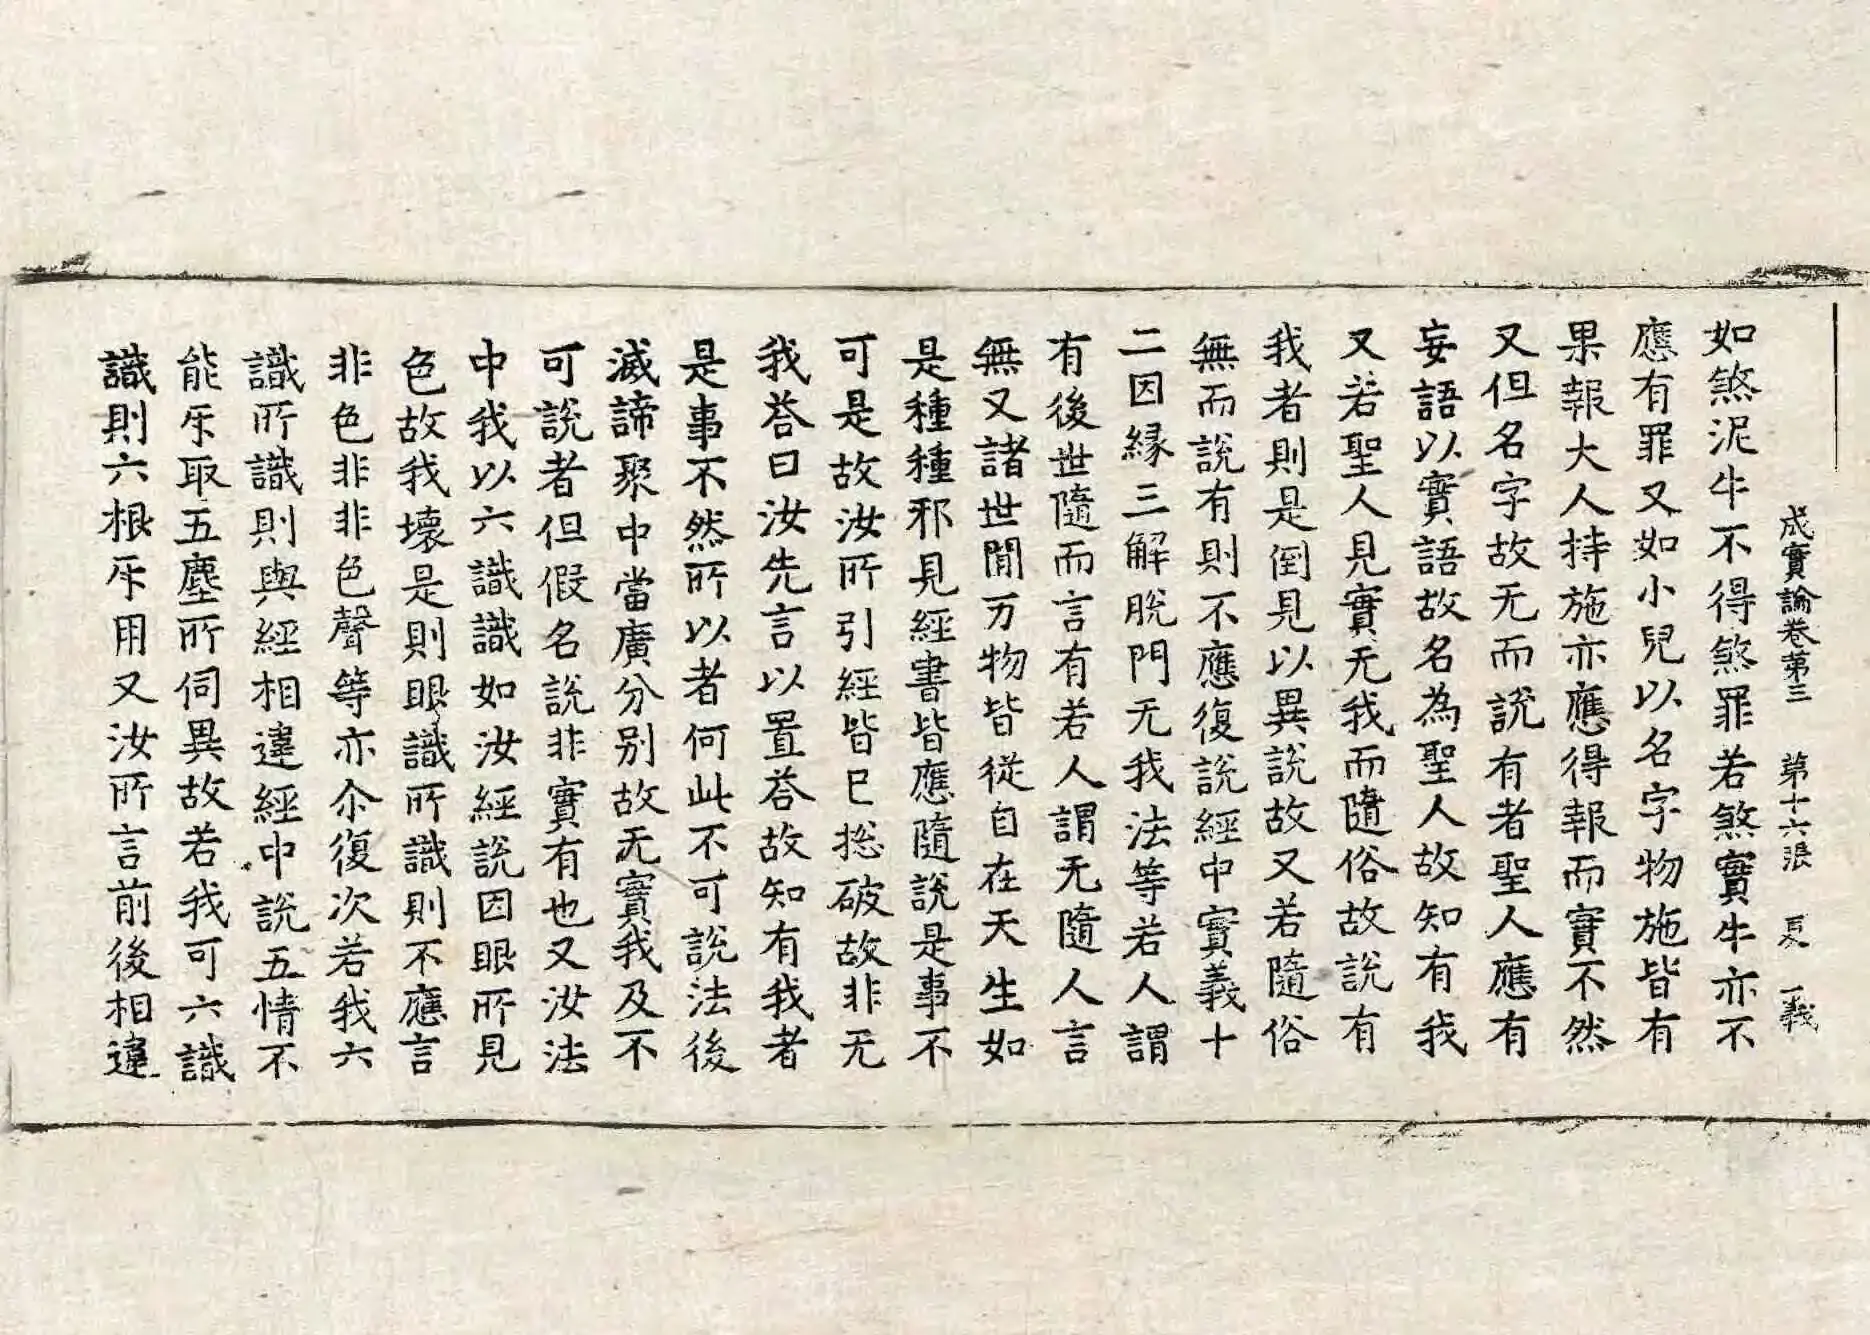 成實論卷第三 第十六張 夏 一義
如煞泥牛不得煞罪若煞實牛亦不
應有罪又如小兒以名字物施皆有
果報大人持施亦應得報而實不然
又但名字故无而說有者聖人應有
妄語以實語故名為聖人故知有我
又若聖人見實无我而隨俗故說有
我者則是倒見以異說故又若隨俗
無而說有則不應復說經中實義十
二因緣三解脫門无我法等若人謂
有後世隨而言有若人謂无隨人言
無又諸世閒万物皆從自在天生如
是種種邪見經書皆應隨說是事不
可是故汝所引經皆已捴破故非无
我荅曰汝先言以置荅故知有我者
是事不然所以者何此不可說法後
滅諦聚中當廣分別故无實我及不
可說者但假名說非實有也又汝法
中我以六識識如汝經說因眼所見
色故我壞是則眼識所識則不應言
非色非非色聲等亦尒復次若我六
識所識則與經相違經中說五情不
能㸦取五塵所伺異故若我可六識
識則六根㸦用又汝所言前後相違